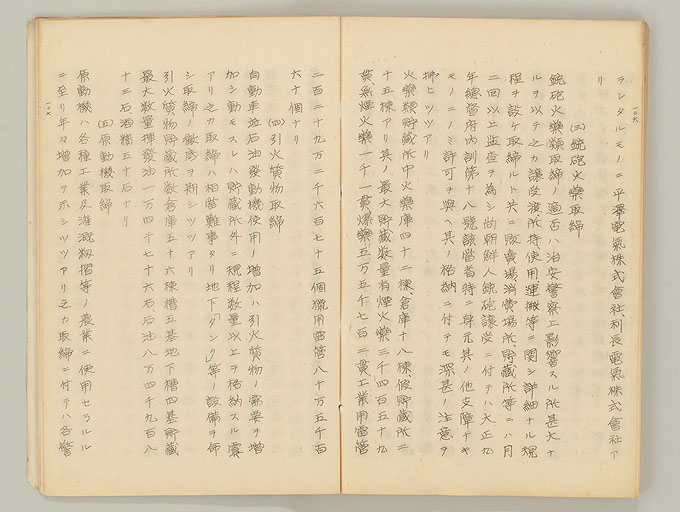 ランタルモノニ平澤電氣株式會社、利長電氣株式會社ア
リ
(三)銃砲火藥取締
銃砲火藥類取締ノ適否ハ治安警察上影響スル所甚大ナ
ルヲ以テ之カ讓受渡所持、使用運搬等ニ関シ詳細ナル規
程ヲ設ケ取締ルト共ニ販賣場消費場所、貯藏所等ニハ月
二回以上監査ヲ為シ尚朝鮮人銃砲讓受ニ付テハ大正九
年總督府内訓第十八號該當者特ニ身元其ノ他支障ナキ
モノニノミ許可ヲ與ヘ其ノ格納ニ付テモ深甚ノ注意ヲ
拂ヒツツアリ
火藥類貯藏所中火藥庫四十二棟、倉庫十八棟假貯藏所二
十五棟アリ其ノ最大貯藏数量有煙火藥三千四百五十九
貫、無煙火藥一千一貫爆藥五万五千七百二貫、工業用雷管
二百二十九万二千六百七十五個猟用雷管八十万五千百
六十個ナリ
(四)引火質物取締
自動車並石油發動機使用ノ増加ハ引火質物ノ需要ヲ増
加シ動モスレハ貯藏所外ニ規程数量以上ヲ格納スル虞
アリ之カ取締ハ相當難事タリ地下「タンク」等ノ設備ヲ命
シ取締ノ徹底ヲ期シツツアリ
引火質物貯藏所数倉庫五十六棟槽五基地下槽四基貯藏
最大数量揮發油一万四千七十六石石油八万四千九百八
十三石酒精五十石ナリ
(五)原動機取締
原動機ハ各種工業及灌漑籾摺等ノ農業ニ使用セラルル
ニ至リ年々増加ヲ示シツツアリ之カ取締ニ付テハ各警